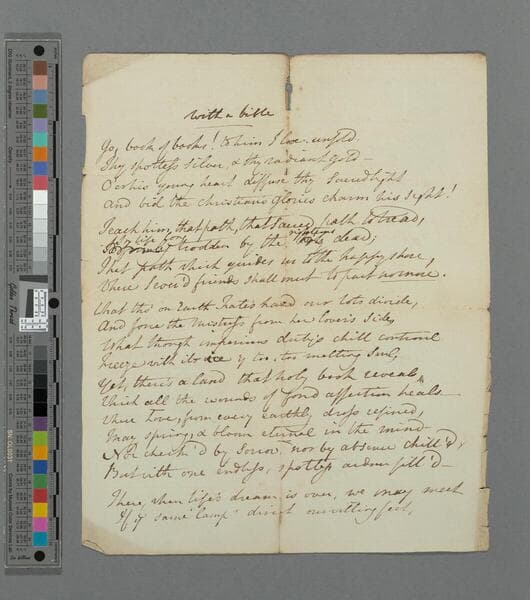 with a bible
Go, book of books! to him I love unfold
Thy spotless silver, & thy radiant gold -
O'er his young heart diffuse thy sacred light
And bid the christian's glories charm his sight!
Teach him, that path, that sacred path to tread,
trodden by the dead;
That path which guides us to the happy shore,
Where sever'd friends shall meet to part no more.
What tho' on Earth Fate's hand our lots divide,
And force the mistress from her lover's side,
What though imperious duty's chill controul
Freeze with its ice y too, too melting Soul,
Yet, there's a land that holy book reveals,
Which all the wounds of fond affection heals
Where Love, from every earthly dross refined,
May spring, & bloom eternal in the mind
Nor check'd by Sorrow, nor by absence chill'd,
But with one endless, spotless ardour fill'd -
There, when life's dream is over, we may meet
If y same "Lamp" direct our willing feet,